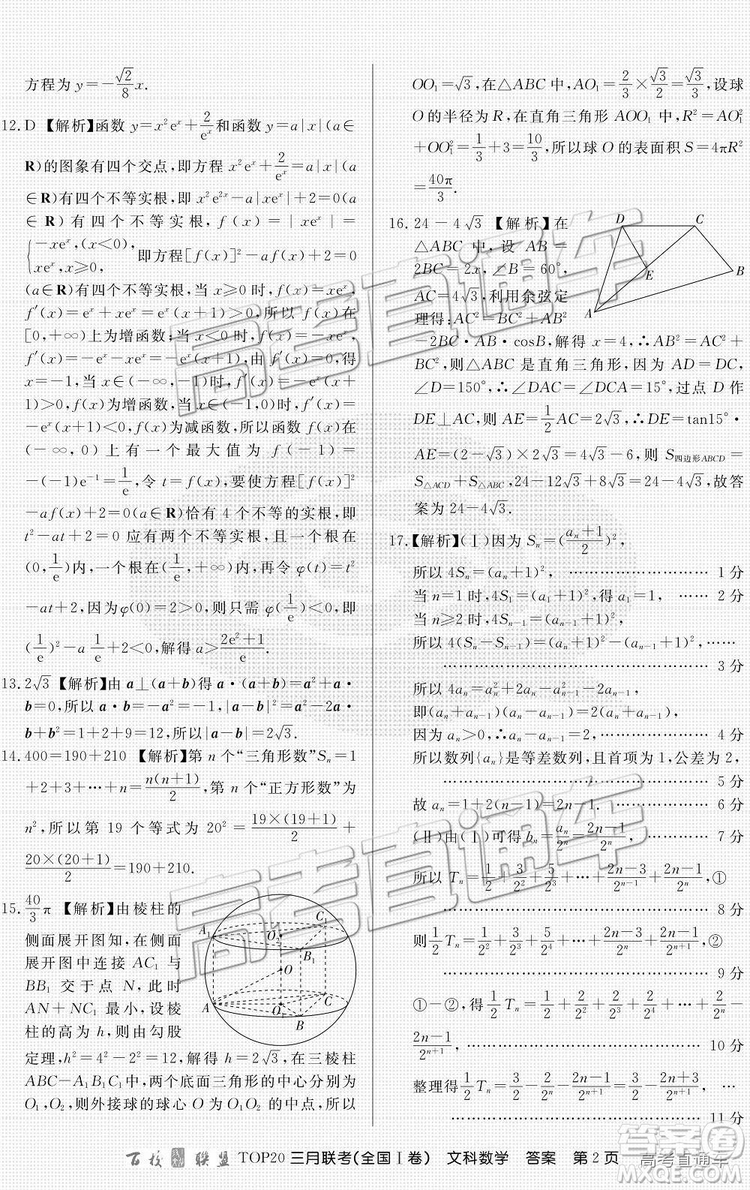 方程为 y=-\frac{\sqrt{2}}{8}x.
12. D 【解析】函数 y=x²eˣ+\frac{2}{eˣ}和函数 y=a|x|(a∈
R)的图象有四个交点,即方程 x²eˣ+\frac{2}{eˣ}=a|x|(a
∈R)有四个不等实根,即 x²e²ˣ-a|x|eˣ+2=0(a
∈R) 有四个不等实根, f(x)=|xeˣ|=
{-xeˣ,x<0, xeˣ,x≥0, 即方程[f(x)]²-af(x)+2=0
(a∈R)有四个不等实根,当 x≥0 时,f(x)=xeˣ,
f′(x)=eˣ+xeˣ=eˣ(x+1)>0,所以 f(x)在
[0,+∞)上为增函数;当 x<0 时,f(x)=-xeˣ,
f′(x)=-eˣ-xeˣ=-eˣ(x+1),由 f′(x)=0,得 x
=-1,当 x∈(-∞,-1)时,f′(x)=-eˣ(x+1)>
0,f(x)为增函数,当 x∈(-1,0)时,f′(x)=
-eˣ(x+1)<0,f(x)为减函数,所以函数 f(x)在
(-∞,0)上有一个最大值为 f(-1)=
-(-1)e⁻¹=\frac{1}{e},令 t=f(x),要使方程[f(x)]²-
af(x)+2=0(a∈R)恰有 4 个不等的实根,即
t²-at+2=0 应有两个不等实根,且一个根在
(0,\frac{1}{e})内,一个根在(\frac{1}{e},+∞)内,再令 φ(t)=t²-
at+2,因为 φ(0)=2>0,则只需 φ(\frac{1}{e})<0,即
(\frac{1}{e})²-\frac{1}{e}a+2<0,解得 a>\frac{2e²+1}{e}.
13. 2√3 【解析】由 a⊥(a+b)得 a·(a+b)=a²+a·
b=0,所以 a·b=-a²=-1,|a-b|²=a²-2a·
b+b²=1+2+9=12,所以|a-b|=2√3.
14. 400=190+210 【解析】第 n 个“三角形数”Sₙ=1
+2+3+…+n=\frac{n(n+1)}{2},第 n 个“正方形数”为
n²,所以第 19 个等式为 20²=\frac{19×(19+1)}{2}+
\frac{20×(20+1)}{2}=190+210.
15. \frac{40}{3}π 【解析】由棱柱的
侧面展开图知,在侧面展
开图中连接 AC₁ 与
BB₁ 交于点 N,此时
AN+NC₁ 最小,设棱
柱的高为 h,则由勾股
定理,h²=4²-2²=12,解得 h=2√3,在三棱柱
ABC-A₁B₁C₁ 中,两个底面三角形的中心分别为
O₁,O₂,则外接球的球心 O 为 O₁O₂ 的中点,所以
A₁
C₁
O₂
B₁
O
A
O₁
C
B
OO₁=√3,在△ABC 中,AO₁=\frac{2}{3}×\frac{√3}{2}×2=\frac{2√3}{3},设球
O 的半径为 R,在直角三角形 AOO₁ 中,R²=AO₁²
+OO₁²=\frac{1}{3}+3=\frac{10}{3},所以球 O 的表面积 S=4πR²
=\frac{40π}{3}.
16. 24-4√3 【解析】在
△ABC 中,设 AB=
2BC=2x,∠B=60°,
AC=4√3,利用余弦定
理得:AC²=BC²+AB²
D
C
E
B
A
-2BC·AB·cosB,解得 x=4,∴AB²=AC²+
BC²,则△ABC 是直角三角形,因为 AD=DC,
∠D=150°,∴∠DAC=∠DCA=15°,过点 D 作
DE⊥AC,则 AE=\frac{1}{2}AC=2√3,∴DE=tan15°·
AE=(2-√3)×2√3=4√3-6,则 S四边形ABCD=
S△ACD+S△ABC,24-12√3+8√3=24-4√3,故答
案为 24-4√3.
17.【解析】(Ⅰ)因为 Sₙ=(\frac{aₙ+1}{2})²,
所以 4Sₙ=(aₙ+1)², ………………… 1 分
当 n=1 时,4S₁=(a₁+1)²,得 a₁=1,
当 n≥2 时,4Sₙ₋₁=(aₙ₋₁+1)²,
所以 4(Sₙ-Sₙ₋₁)=(aₙ+1)²-(aₙ₋₁+1)²,……
………………………… 3 分
所以 4aₙ=aₙ²+2aₙ-aₙ₋₁²-2aₙ₋₁,
即(aₙ+aₙ₋₁)(aₙ-aₙ₋₁-2)=0,
因为 aₙ>0,所以 aₙ-aₙ₋₁=2, ………… 4 分
所以数列{aₙ}是等差数列,且首项为 1,公差为 2,
………………………… 5 分
故 aₙ=1+2(n-1)=2n-1. ………… 6 分
(Ⅱ)由(Ⅰ)可得 bₙ=\frac{aₙ}{2ⁿ}=\frac{2n-1}{2ⁿ}, ……… 7 分
所以 Tₙ=\frac{1}{2}+\frac{3}{2²}+\frac{5}{2³}+…+\frac{2n-3}{2ⁿ⁻¹}+\frac{2n-1}{2ⁿ},①
………………………… 8 分
则\frac{1}{2}Tₙ=\frac{1}{2²}+\frac{3}{2³}+…+\frac{2n-3}{2ⁿ}+\frac{2n-1}{2ⁿ⁺¹},②
………………………… 9 分
①-②,得\frac{1}{2}Tₙ=\frac{1}{2}+\frac{2}{2²}+\frac{2}{2³}+…+\frac{2}{2ⁿ}-
\frac{2n-1}{2ⁿ⁺¹}, ………………………… 10 分
整理得\frac{1}{2}Tₙ=\frac{3}{2}-\frac{2}{2ⁿ}-\frac{2n-1}{2ⁿ⁺¹}, …
………………………… 11 分
百校 联盟 TOP20 三月联考(全国Ⅰ卷) 文科数学 答案 第 2 页
高考直通车
高考直通车
答案圈
MXQE.COM
高考直通车